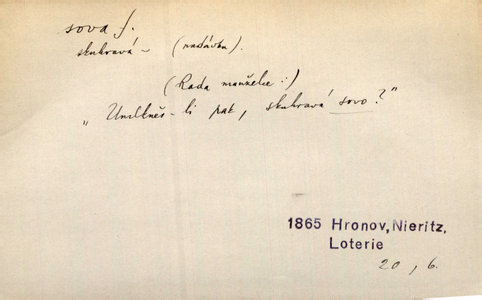 sova f.
skuhravá – (nadávka).
(Rada manželce :)
„Umlkneš-li pak, skuhravá sovo?"
1865 Hronov, Nieritz,
Loterie
20, 6.